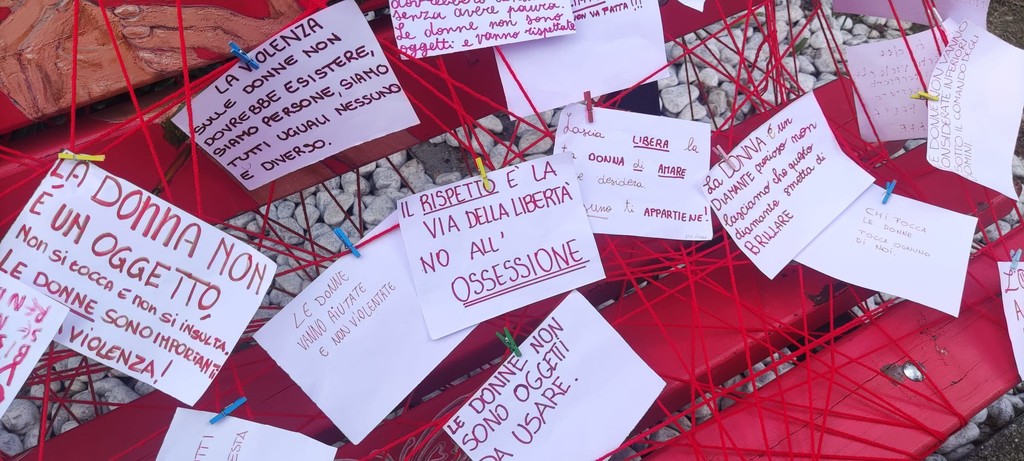 LA VIOLENZA
SULLE DONNE NON
DOVREBBE ESISTERE,
SIAMO PERSONE, SIAMO
TUTTI UGUALI NESSUNO
E' DIVERSO.
senza avere paura.
Le donne non sono
oggetti e vanno rispettate
NON VA FATTA !!!
LA DONNA NON
É UN OGGETTO,
NON SI TOCCA E NON SI INSULTA
LE DONNE SONO IMPORTANTI
VIOLENZA!
LE DONNE
VANNO AIUTATE
E NON VIOLENTATE
IL RISPETTO E' LA
VIA DELLA LIBERTA'
NO ALL'
OSSESSIONE
Lascia LIBERA la
DONNA di AMARE
desidera
uno ti APPARTIENE!
La DONNA É un
DIAMANTE prezioso non
lasciamo che questo
diamante smetta di
BRILLARE
CHI TOCCA
LE DONNE
TOCCA OGNUNO
DI NOI.
E DONNE NON VANNO
CONSIDERATE INFERIORI
SOTTO IL COMANDO DEGLI
LE DONNE NON
SONO OGGETTI
DA USARE.